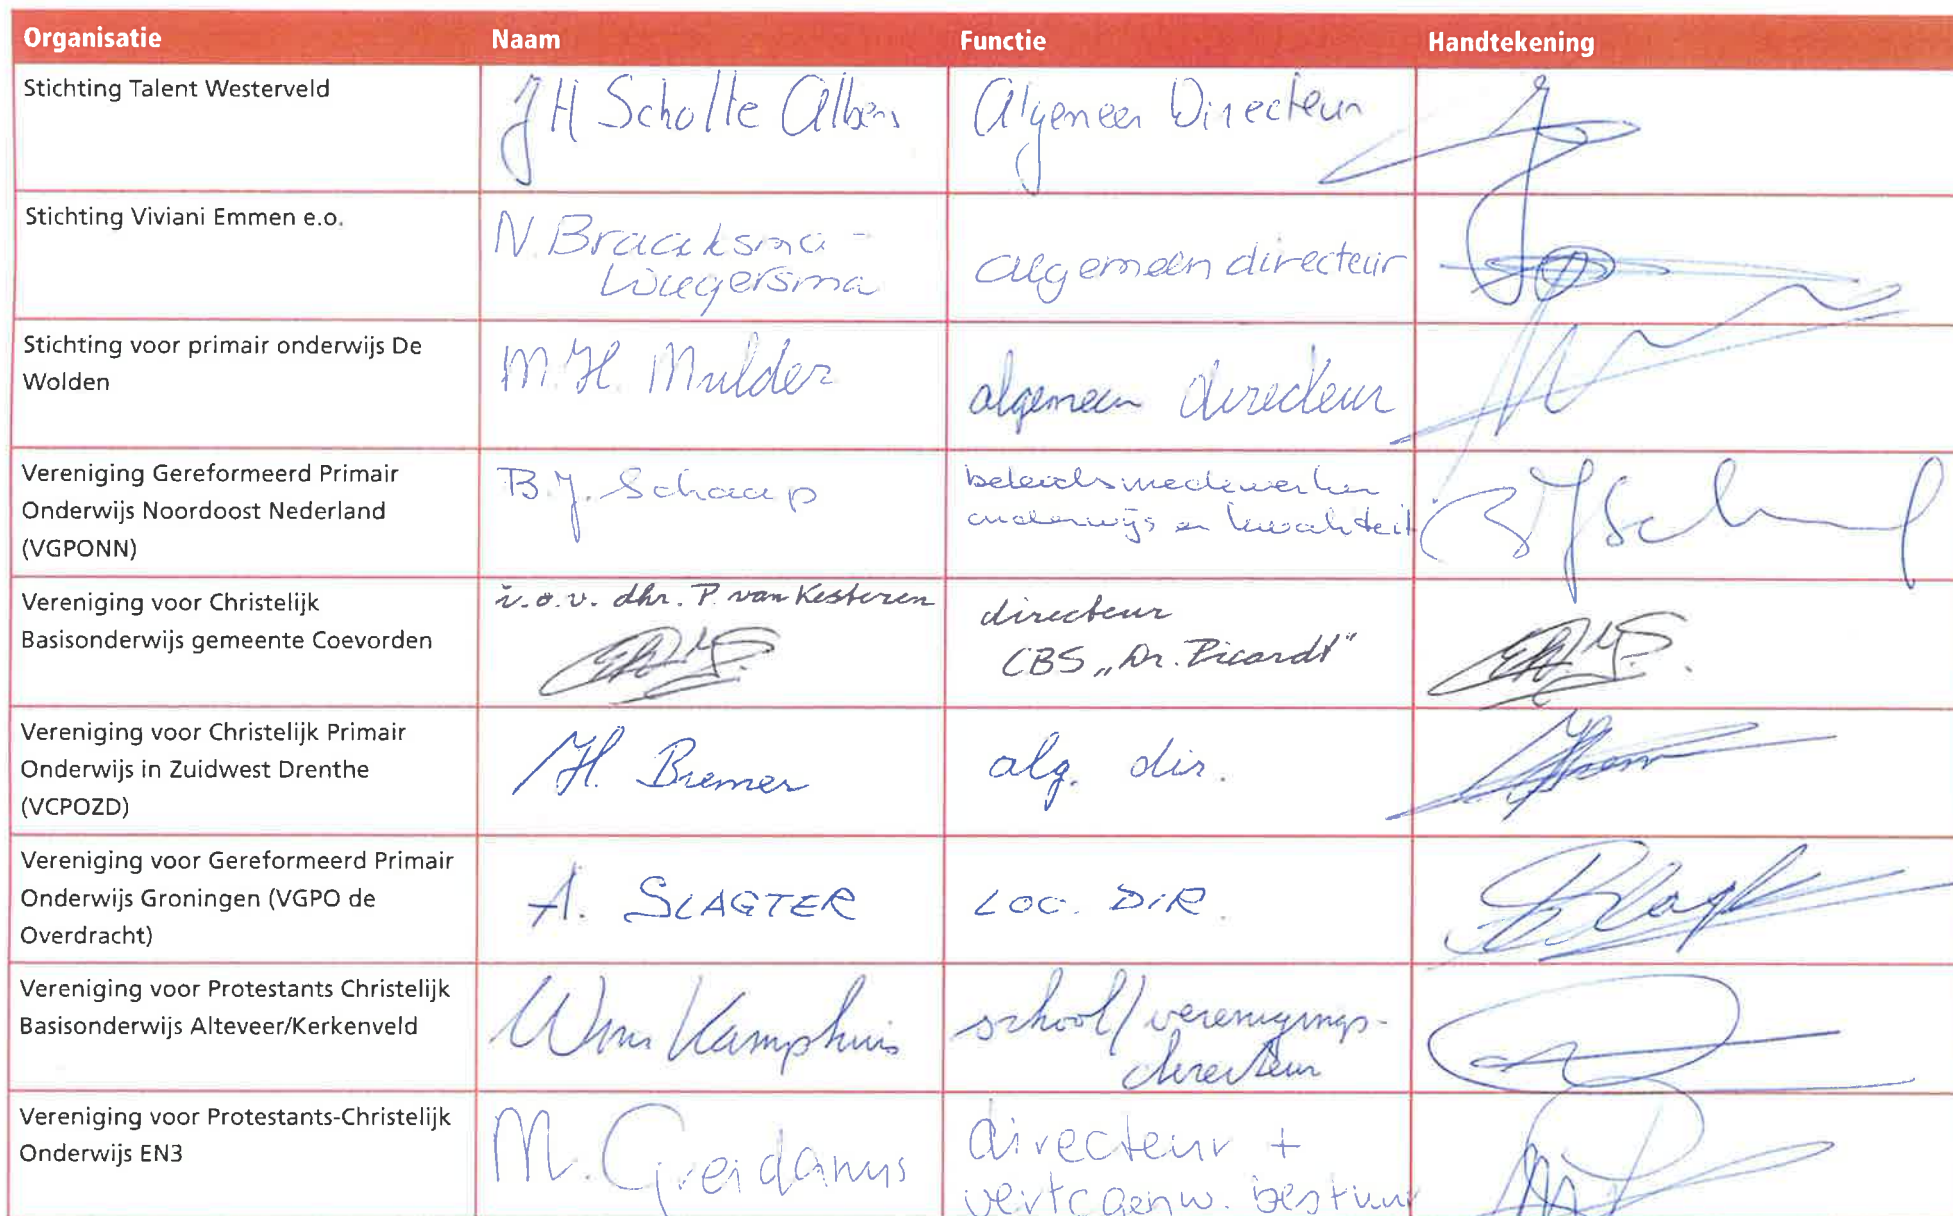 Organisatie Naam Functie Handtekening
Stichting Talent Westerveld
JH Scholte Albers
Algemeen Directeur
Stichting Viviani Emmen e.o.
N. Braaksma -
Wiegersma
algemeen directeur
Stichting voor primair onderwijs De
Wolden
M.H. Mulder
algemeen directeur
Vereniging Gereformeerd Primair
Onderwijs Noordoost Nederland
(VGPONN)
B.J. Schaap
beleidsmedewerker
onderwijs en kwaliteit
BJSch
Vereniging voor Christelijk
Basisonderwijs gemeente Coevorden
i.o.v. dhr. P. van Kesteren
directeur
CBS „Dr. Picardt"
Vereniging voor Christelijk Primair
Onderwijs in Zuidwest Drenthe
(VCPOZD)
H. Bremer
alg. dir.
Vereniging voor Gereformeerd Primair
Onderwijs Groningen (VGPO de
Overdracht)
A. SLAGTER
LOC. DIR.
Vereniging voor Protestants Christelijk
Basisonderwijs Alteveer/Kerkenveld
Wim Kamphuis
school/verenigings-
directeur
Vereniging voor Protestants-Christelijk
Onderwijs EN3
M. Greidanus
directeur +
vertegenw. bestuur